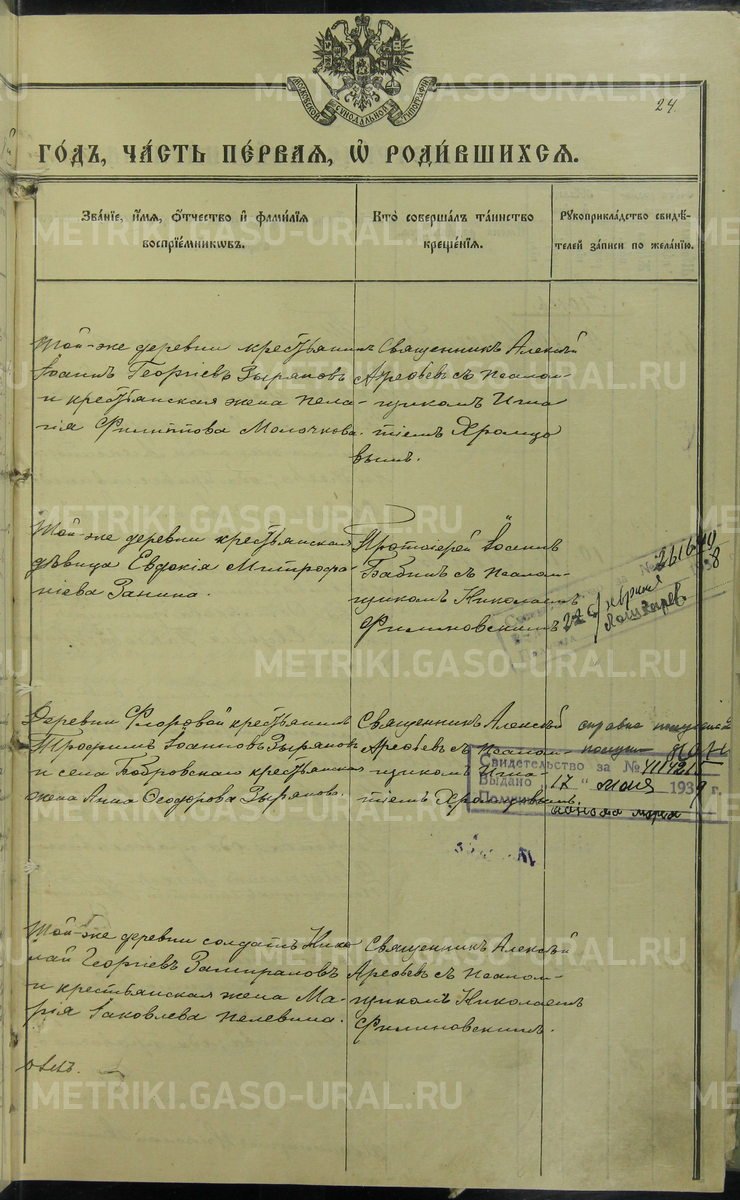 МОСКОВСКОЙ СѴНОДАЛЬНОЙ ТИПОГРАФІИ
24.
ГО́ДЪ, ЧА́СТЬ ПЕ́РВАЯ, Ѡ҆ РОДИ́ВШИХСЯ.
Зва́нїе, и҆́мя, ѻ҆́тчество и҆ фами́лїя
воспрїе́мникѡвъ.
Кто̀ соверша́лъ та́инство
креще́нїя.
Рꙋкоприкла́дство свидѣ́-
телей за́писи по жела́нїю.
Той-же деревни крестьянинъ
Іоаннъ Георгіевъ Зыряновъ
и крестьянская жена Пела-
гія Филиппова Молочкова.
Священникъ Алексѣй
Арефьевъ съ псалом-
щикомъ Игна
тіемъ Хромцо
вымъ.
Той-же деревни крестьянская
дѣвица Евдокія Митрофа-
ніева Занина.
Протоіерей Іоаннъ
Бабинъ съ псалом-
щикомъ Николаемъ
Филиновскимъ
261640
22 февраля
Деревни Фроловой крестьянинъ
Трофимъ Іоанновъ Зыряновъ
и села Бобровскаго крестьянская
жена Анна Ѳеодорова Зырянова.
Священникъ Алексѣй
Арефьевъ съ псалом-
щикомъ Игна-
тіемъ Хромцовымъ.
справка
Свидетельство за №
Выдано 17 " мая 1939 г.
Той-же деревни солдатъ Нико
лай Георгіевъ Замираловъ
и крестьянская жена Ма-
рія Іаковлева Пелевина.
Священникъ Алексѣй
Арефьевъ съ псалом-
щикомъ Николаемъ
Филиновскимъ.
METRIKI.GASO-URAL.RU